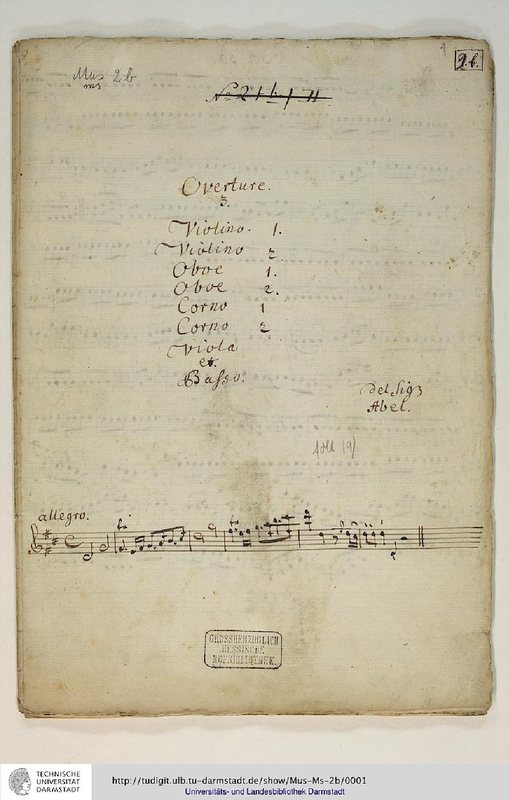 1
2.b.
Mus 2b
ms
Overture.
3.
Violino. 1.
Violino 2
Oboe 1.
Oboe 2.
Corno 1
Corno 2
Viola
et
Basso.
Del Sigr
Abel.
allegro.
GROSSHERZOGLICH
HESSISCHE
HOFBIBLIOTHEK.
TECHNISCHE
UNIVERSITÄT
DARMSTADT
http://tudigit.ulb.tu-darmstadt.de/show/Mus-Ms-2b/0001
Universitäts- und Landesbibliothek Darmstadt